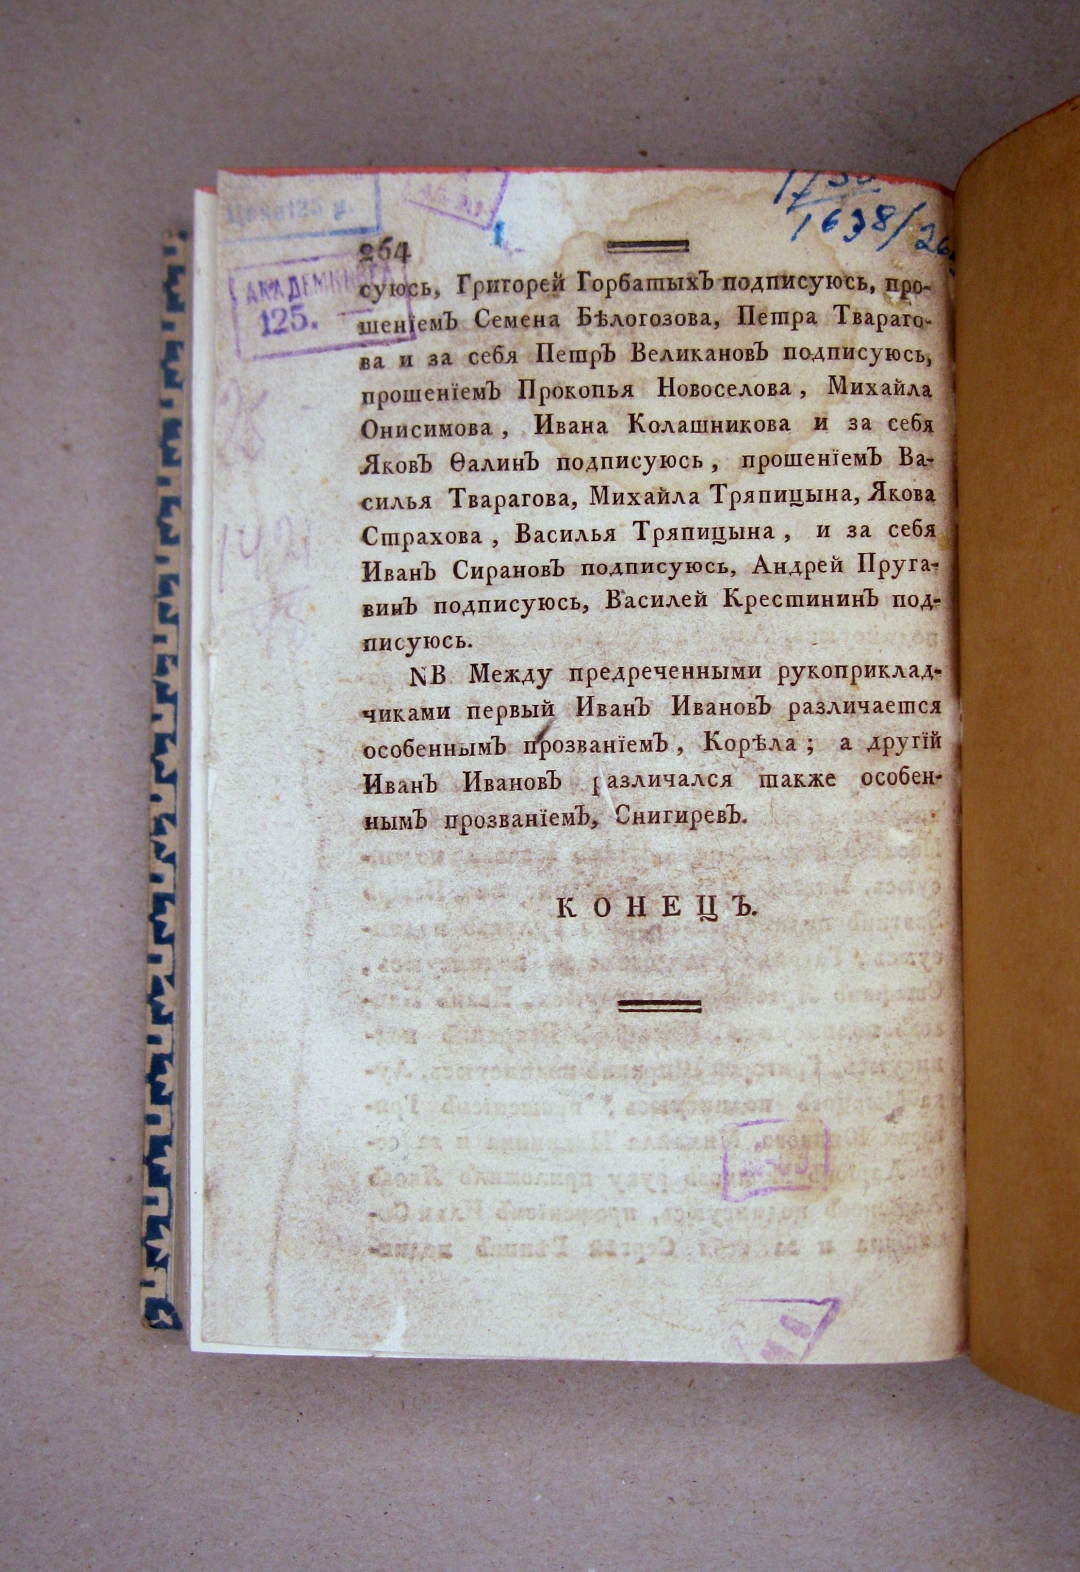 Цена 125 р.
1638/26
264
АКАДЕМКНИГА
125.
суюсь, Григорей Горбатыхъ подписуюсь, про-
шенїемъ Семена Бѣлогозова, Петра Твараго-
ва и за себя Петръ Великановъ подписуюсь,
прошенїемъ Прокопья Новоселова, Михайла
Онисимова, Ивана Колашникова и за себя
Яковъ Ѳалинъ подписуюсь, прошенїемъ Ва-
силья Тварагова, Михайла Тряпицына, Якова
Страхова, Василья Тряпицына, и за себя
Иванъ Сирановъ подписуюсь, Андрей Пруга-
винъ подписуюсь, Василей Крестининъ под-
писуюсь.
NB. Между предреченными рукоприклад-
чиками первый Иванъ Ивановъ различается
особеннымъ прозванїемъ, Корѣла; а другїй
Иванъ Ивановъ различался также особен-
нымъ прозванїемъ, Снигиревъ.
КОНЕЦЪ.